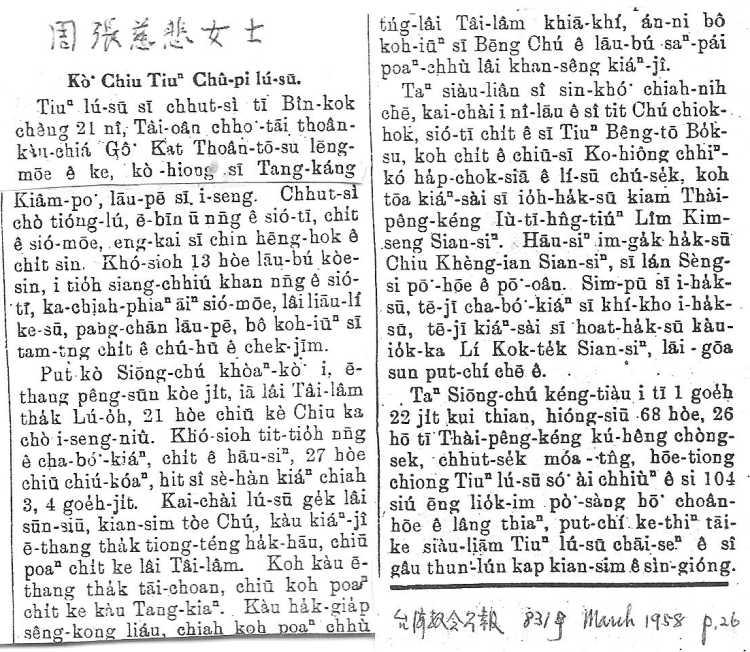 周張慈悲女士
Kò͘ Chiu Tiuⁿ Chû-pi lú-sū.
Tiuⁿ lú-sū sī chhut-sì tī Bîn-kok
chêng 21 nî, Tâi-oân chho͘-tāi thoân-
kàu-chiá Gô͘ Kat Thoân-tō-su lēng-
mōe ê ke, kò͘-hiong sī Tang-káng
Kiâm-po͘, lāu-pē sī i-seng. Chhut-sì
chò tióng-lú, ē-bīn ū nn̄g ê sió-tī, chi̍t
ê sió-mōe, eng-kai sī chin hēng-hok ê
chi̍t sin. Khó-sioh 13 hòe lāu-bú kòe-
sin, i tio̍h siang-chhiú khan nn̄g ê sió-
tī, ka-chiah-phiaⁿ āiⁿ sió-mōe, lâi liāu-lí
ke-sū, pang-chān lāu-pē, bô koh-iūⁿ sī
tam-tng chi̍t ê chú-hū ê chek-jīm.
Put-kò Siōng-chú khòaⁿ-kò͘ i, ē-
thang pêng-sūn kòe ji̍t, iā lâi Tâi-lâm
tha̍k Lú-o̍h, 21 hòe chiū kè Chiu ka
chò i-seng-niû. Khó-sioh tit-tio̍h nn̄g
ê cha-bó͘-kiáⁿ, chi̍t ê hāu-siⁿ, 27 hòe
chiū chiú-kóaⁿ, hit sî sè-hàn kiáⁿ chiah
3, 4 goe̍h-ji̍t. Kai-chài lú-sū ge̍k lâi
sūn-siū, kian-sim tòe Chú, kàu kiáⁿ-jî
ē-thang tha̍k tiong-téng ha̍k-hāu, chiū
poaⁿ chi̍t ke lâi Tâi-lâm. Koh kàu ē-
thang tha̍k tāi-choan, chiū koh poaⁿ
chi̍t ke kàu Tang-kiaⁿ. Kàu ha̍k-gia̍p
sêng-kong liáu, chiah koh poaⁿ chhù
tńg-lâi Tâi-lâm khiā-khí, án-ni bô
koh-iūⁿ sī Bēng Chú ê lāu-bú saⁿ-pái
poaⁿ-chhù lâi khan-sêng kiáⁿ-jî.
Taⁿ siàu-liân sî sin-khó͘ chiah-nih
chē, kai-chài i nî-lāu ê sî tit Chú chiok-
hok, sió-tī chi̍t ê sī Tiuⁿ Bêng-tō Bo̍k-
su, koh chi̍t ê chiū-sī Ko-hiông chhiⁿ-
kó ha̍p-chok-siā ê lí-sū chú-se̍k, koh
tōa kiáⁿ-sài sī io̍h-ha̍k-sū kiam Thài-
pêng-kéng Iù-tī-hn̂g-tiúⁿ Lîm Kim-
seng Sian-siⁿ. Hāu-siⁿ im-ga̍k ha̍k-sū
Chiu Khèng-ian Sian-siⁿ, sī lán Sèng-
si pō͘-hōe ê pō͘-oân. Sim-pū sī i-ha̍k-
sū, tē-jī cha-bó͘-kiáⁿ sī khí-kho i-ha̍k-
sū, tē-jī kiáⁿ-sài sī hoat-ha̍k-sū kàu-
io̍k-ka Lí Kok-te̍k Sian-siⁿ, lāi-gōa
sun put-chí chē ê.
Taⁿ Siōng-chú kéng-tiàu i tī 1 goe̍h
22 ji̍t kui thian, hióng-siū 68 hòe, 26
hō tī Thài-pêng-kéng kú-hêng chòng-
sek, chhut-se̍k móa-tn̂g, hōe-tiong
chiong Tiuⁿ lú-sū só͘ ài chhiùⁿ ê si 104
siú ēng lio̍k-im pò͘-sàng hō͘ choân-
hōe ê lâng thiaⁿ, put-chí ke-thiⁿ tāi-
ke siàu-liām Tiuⁿ lú-sū chāi-seⁿ ê sî
gâu thun-lún kap kian-sim ê sìn-gióng.
台湾教会公報 831号 March 1958 p.26